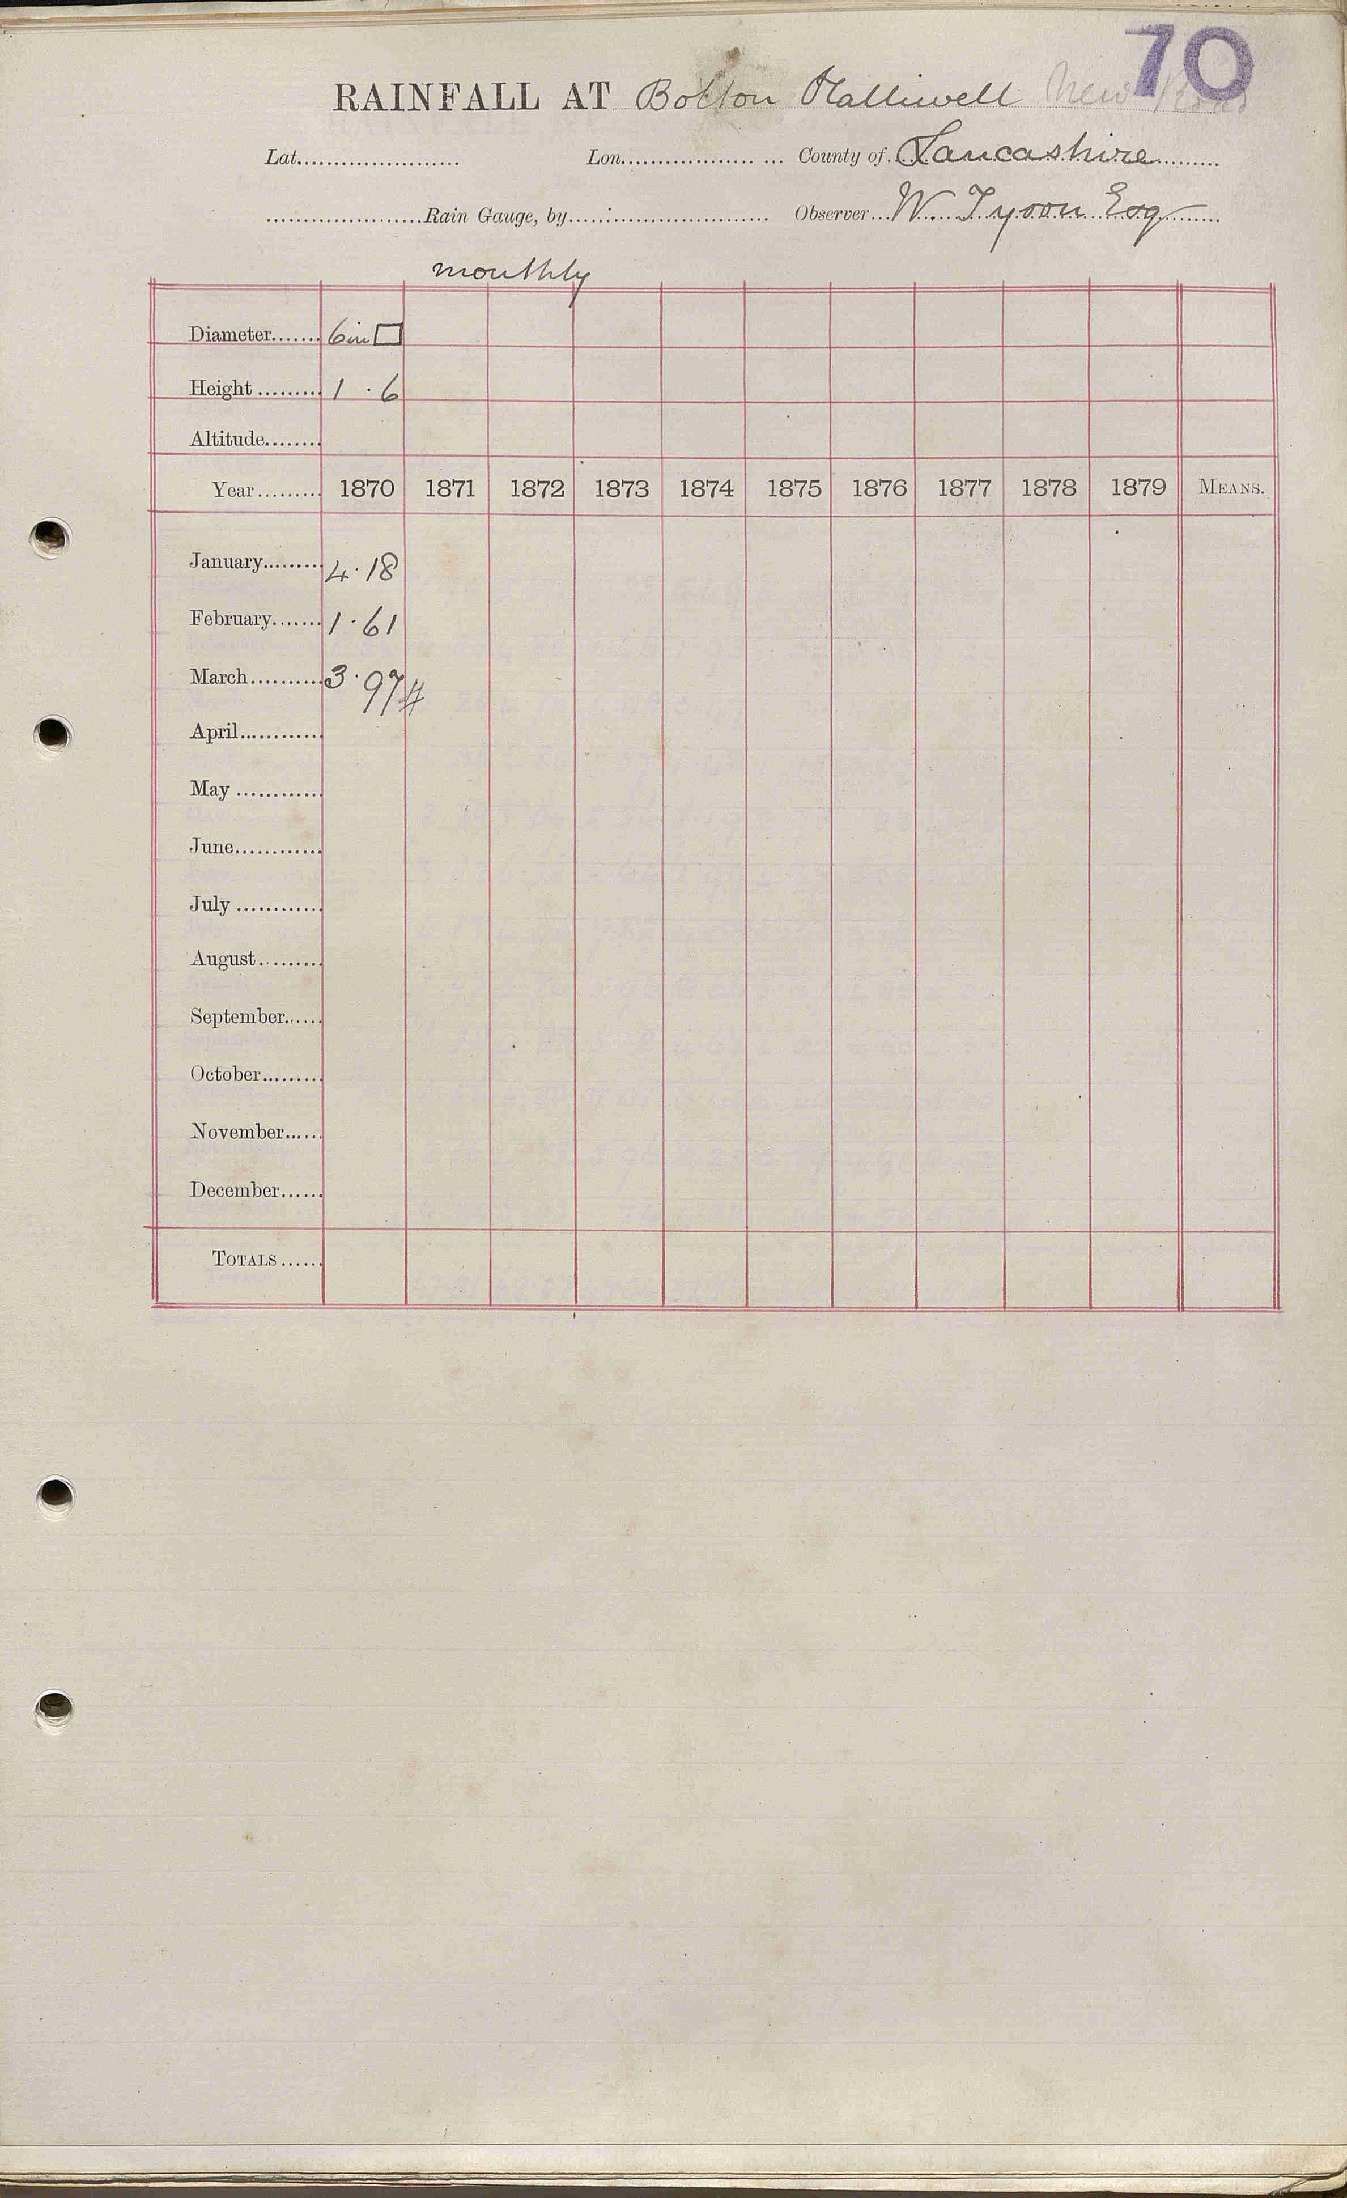 70
RAINFALL AT Bolton Halliwell New Road
Lat. Lon. County of Lancashire
Rain Gauge, by Observer W. Tyson Esq
monthly
Diameter 6in □
Height 1 . 6
Altitude
Year 1870 1871 1872 1873 1874 1875 1876 1877 1878 1879 MEANS.
January 4.18
February 1.61
March 3.97#
April
May
June
July
August
September
October
November
December
TOTALS